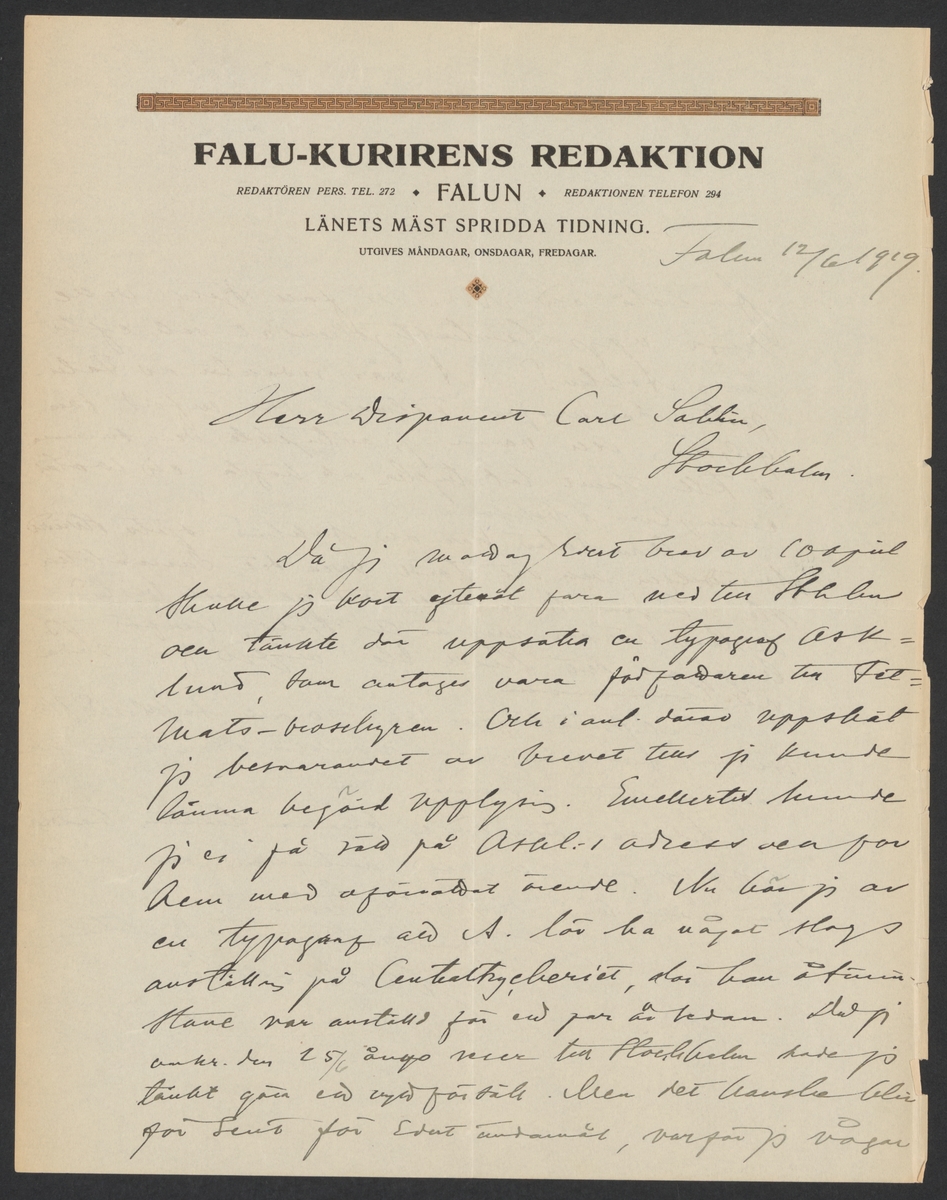 FALU-KURIRENS REDAKTION
REDAKTÖREN PERS. TEL. 272 ♦ FALUN ♦ REDAKTIONEN TELEFON 294
LÄNETS MÄST SPRIDDA TIDNING.
UTGIVES MÅNDAGAR, ONSDAGAR, FREDAGAR.
Falun 12/6 1919.
Herr Disponent Carl Sahlin,
Stockholm.
Då jg mottog Edert brev av 10 april
skulle jg kort efteråt fara ned till Sthlm
och tänkte där uppsöka en typograf Ask=
lund, som antages vara författaren till Fet=
Mats-broschyren. Och i anl. därav uppsköt
jg besvarandet av brevet tills jg kunde
lämna begärd upplysng. Emellertid kunde
jg ej få tag på Askl:s adress och for
hem med oförrättat ärende. Nu hör jg av
en typograf att A. lär ha något slags
anställng på Centraltryckeriet, där han åtmin-
stone var anställd för ett par år sedan. Då jg
omkr. den 25/6 ånyo reser till Stockholm hade jg
tänkt göra ett nytt försök. Men det kanske blir
för sent för Edert ändamål, varför jg vågar